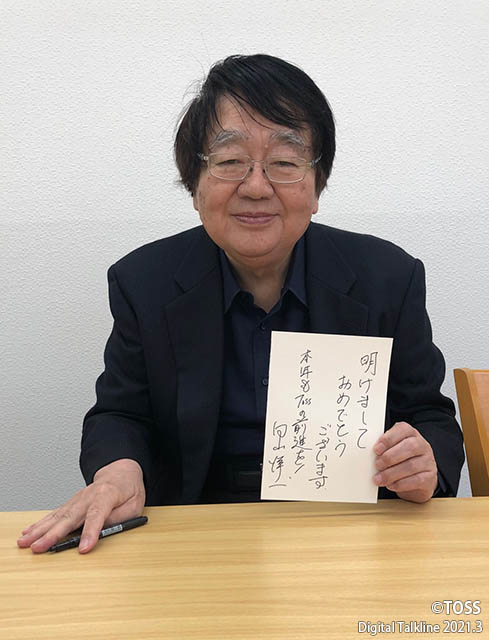 明けまして
おめでとう
ございます
本年もTOSSの前進を!
向山洋一
©TOSS
Digital Talkline 2021.3